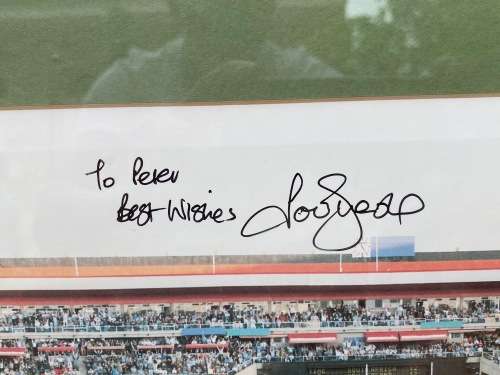 To Peter
Best Wishes